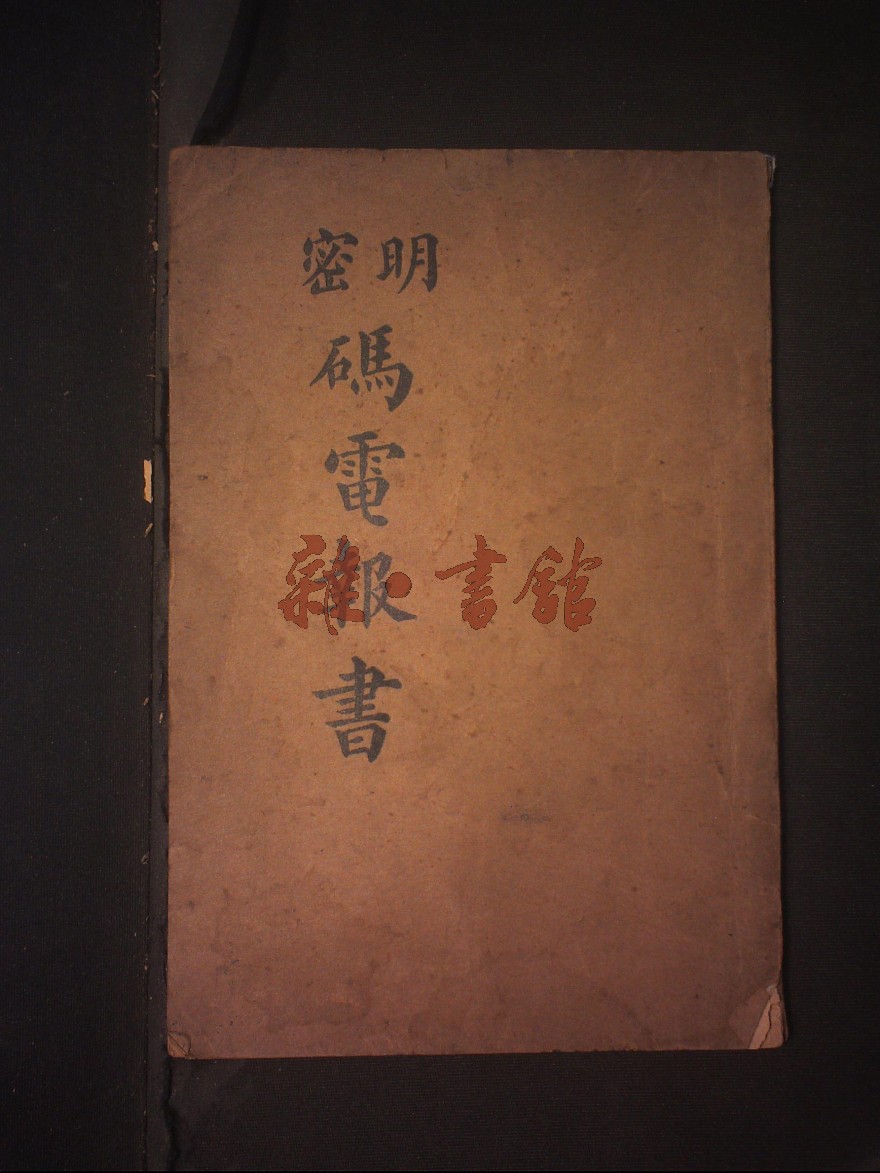 明密
碼電報書
雜·書館